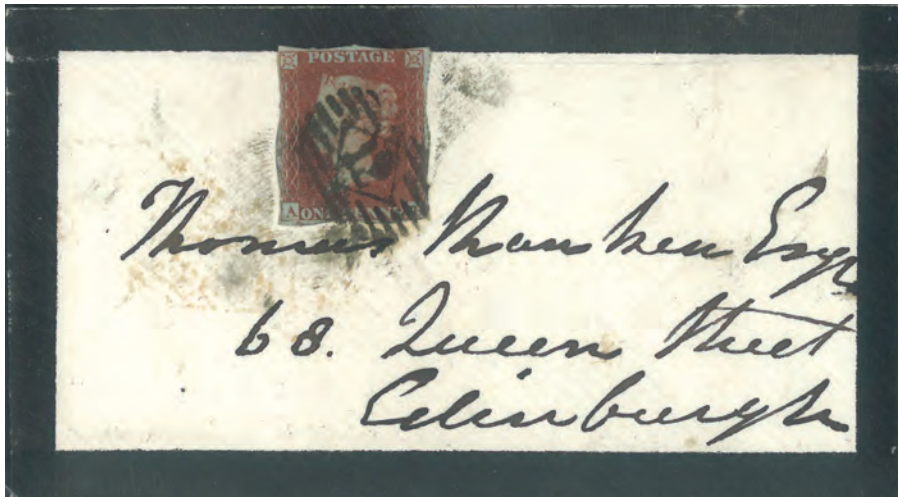 POSTAGE
A ON
Thomas Esqr
68. Queen Street
Edinburgh